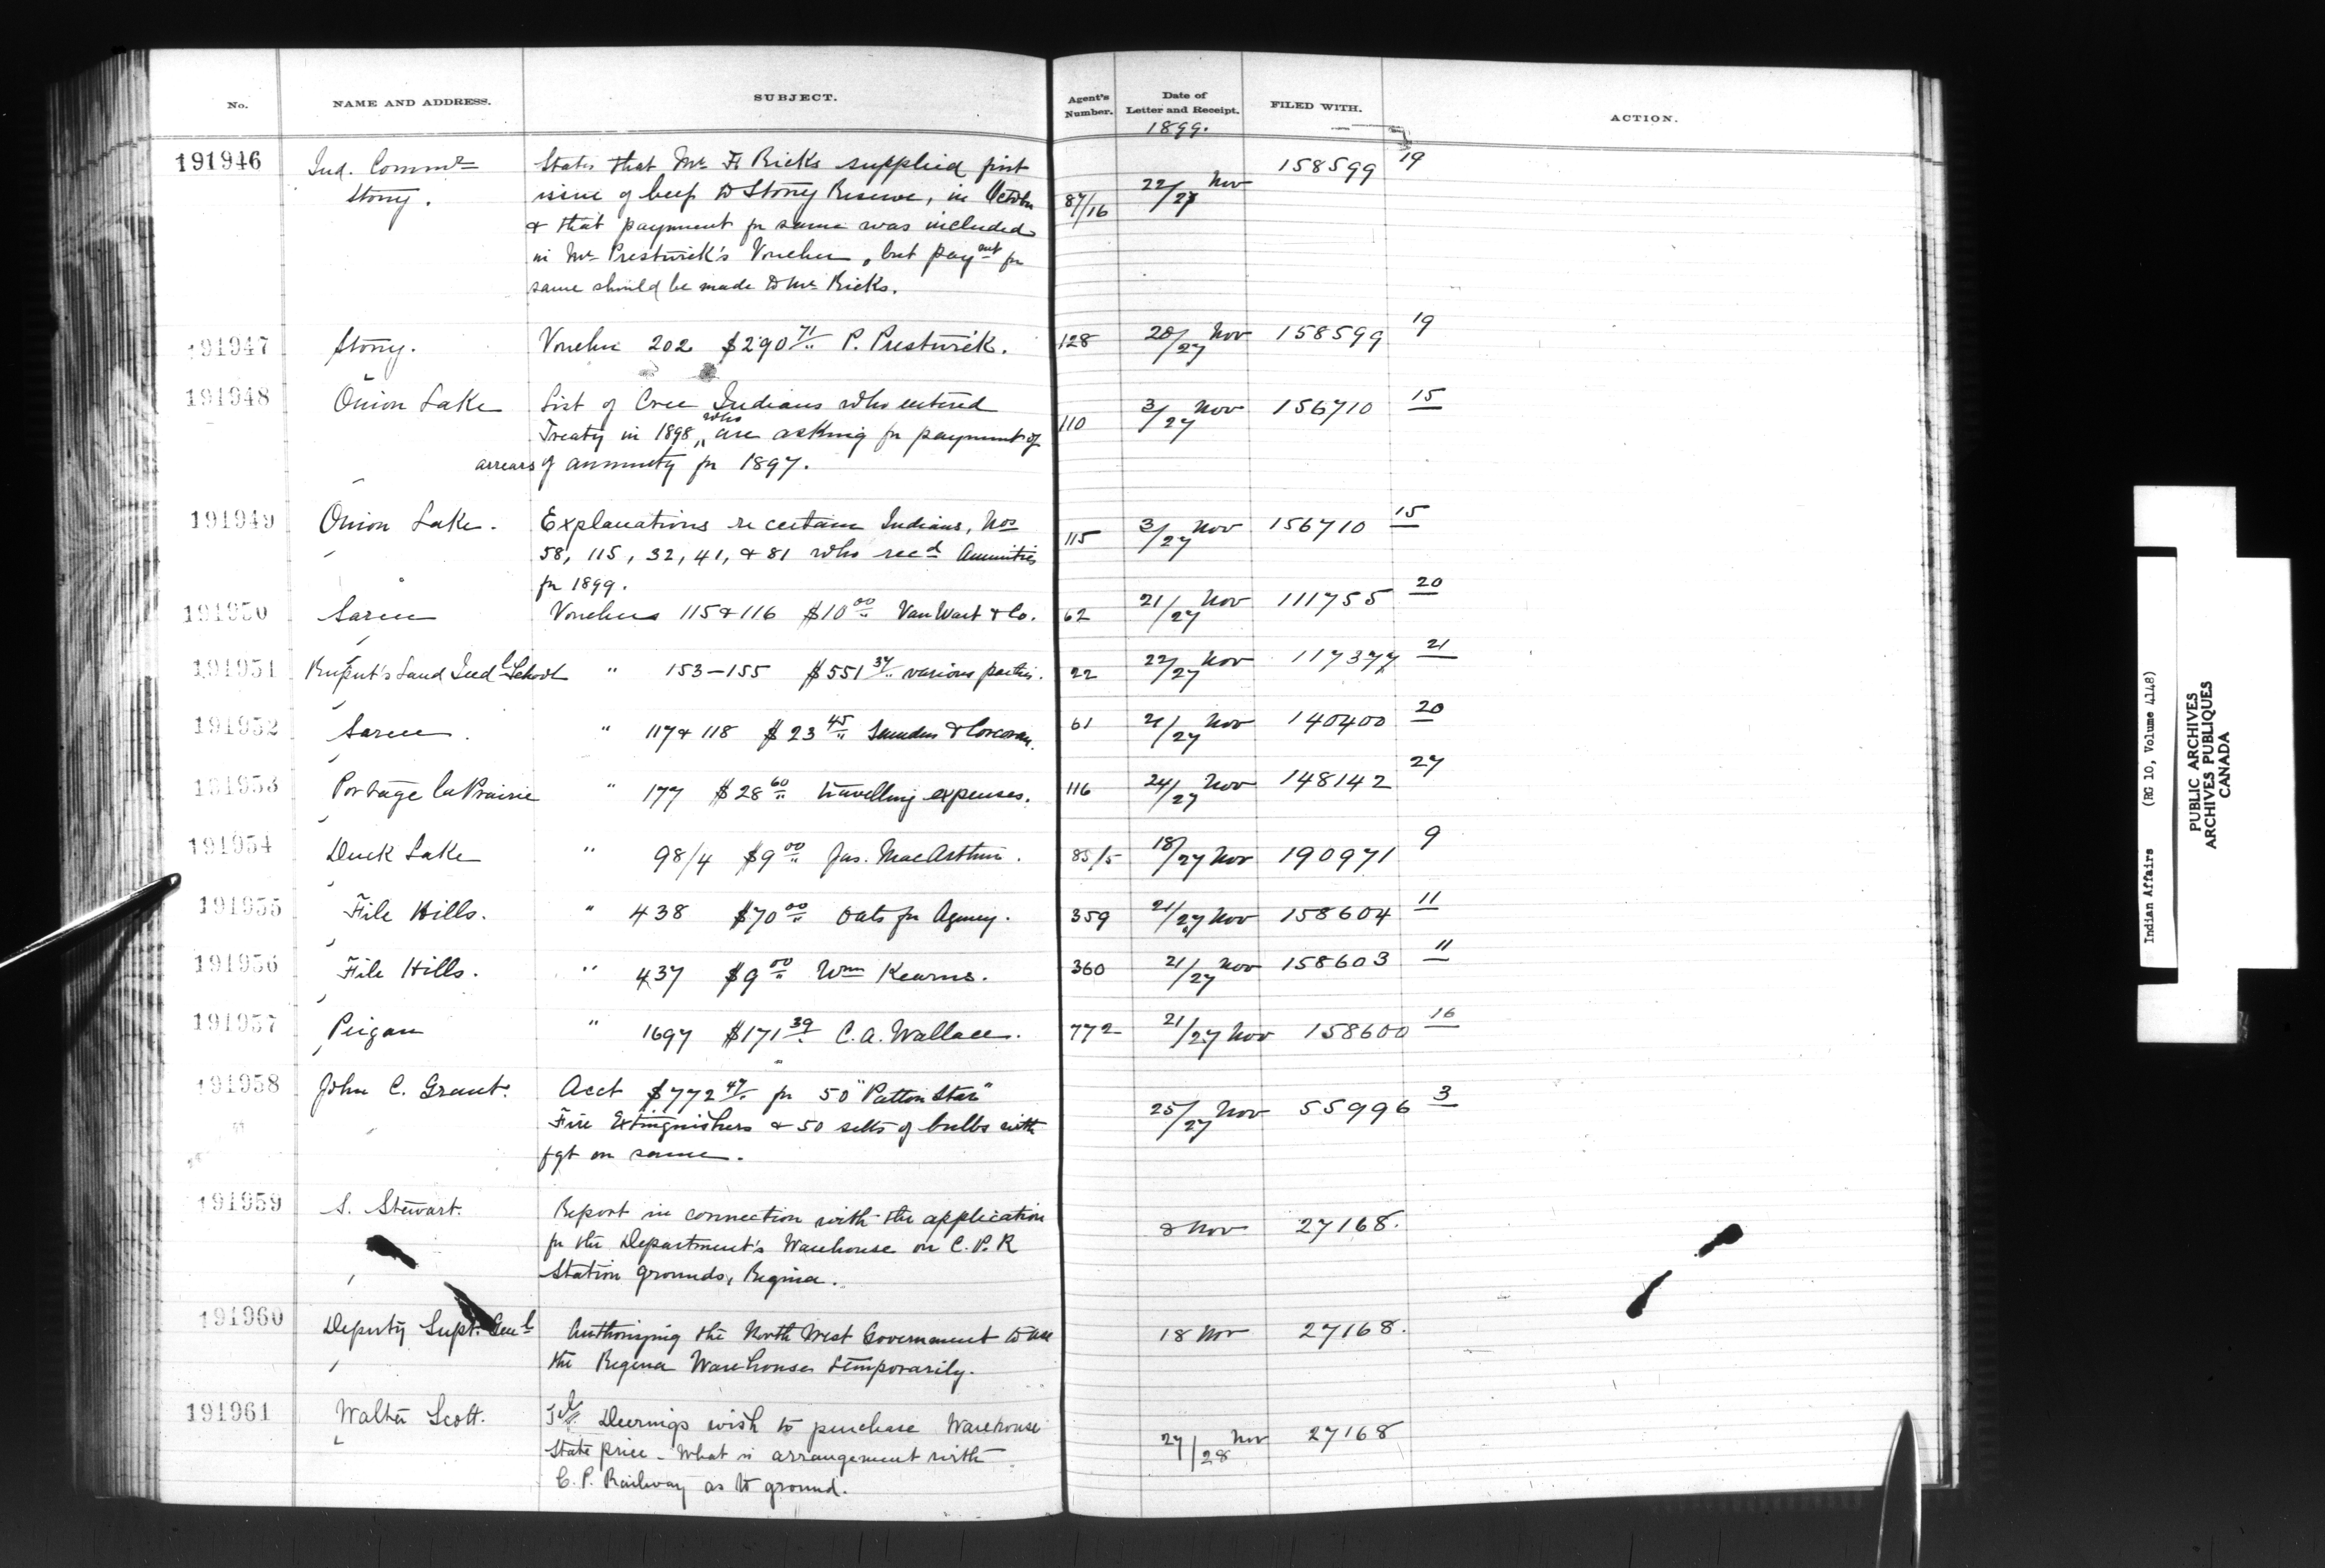 No. NAME AND ADDRESS. SUBJECT. Agent's Number. Date of Letter and Receipt. FILED WITH. ACTION.
1899.
191946 Ind. Commr States that Mr. F. Ricks supplied first 158599 19
Stony. issue of beef to Stony Reserve, in October 87/16 22/27 Nov
& that payment for same was included
in Mr. Prestwick's Voucher, but paymt for
same should be made to Mr. Ricks.
191947 Stony. Voucher 202 $290 71/.. P. Prestwick. 128 20/27 Nov 158599 19
191948 Onion Lake List of Cree Indians who entered 3/27 Nov 156710 15
Treaty in 1898, who are asking for payment of 110
arrears of annuity for 1897.
191949 Onion Lake. Explanations re certain Indians, Nos 115 3/27 Nov 156710 15
58, 115, 32, 41, & 81 who recd Annuities
for 1899.
191950 Sarcee Vouchers 115 & 116 $10 00/.. VanWart & Co. 62 21/27 Nov 111755 20
191951 Rupert's Land Indl School " 153-155 $551 37/.. various parties. 22 22/27 Nov 117377 21
191952 Sarcee. " 117 & 118 $23 45/.. Saunders & Corcoran. 61 21/27 Nov 140400 20
191953 Portage la Prairie " 177 $28 60/.. travelling expenses. 116 24/27 Nov 148142 27
191954 Duck Lake " 98/4 $9 00/.. Jas. MacArthur. 85/5 18/27 Nov 190971 9
191955 File Hills. " 438 $70 00/.. Oats for Agency. 359 21/27 Nov 158604 11
191956 File Hills. " 437 $9 00/.. Wm Kearns. 360 21/27 Nov 158603 11
191957 Peigan " 1697 $171 39/.. C. A. Wallace. 772 21/27 Nov 158600 16
191958 John C. Grant. Acct $772 47/.. for 50 "Patton Star" 25/27 Nov 55996 3
Fire Extinguishers & 50 setts of bulbs with
fgt on same.
191959 S. Stewart. Report in connection with the application 8 Nov 27168.
for the Department's Warehouse on C. P. R
Station grounds, Regina.
191960 Deputy Supt. Genl Authorizing the North West Government to use 18 Nov 27168.
the Regina Warehouse temporarily.
191961 Walter Scott. Tel. Deerings wish to purchase Warehouse 27/28 Nov 27168
State price - What is arrangement with
C. P. Railway as to ground.
Indian Affairs (RG 10, Volume 4148)
PUBLIC ARCHIVES
ARCHIVES PUBLIQUES
CANADA